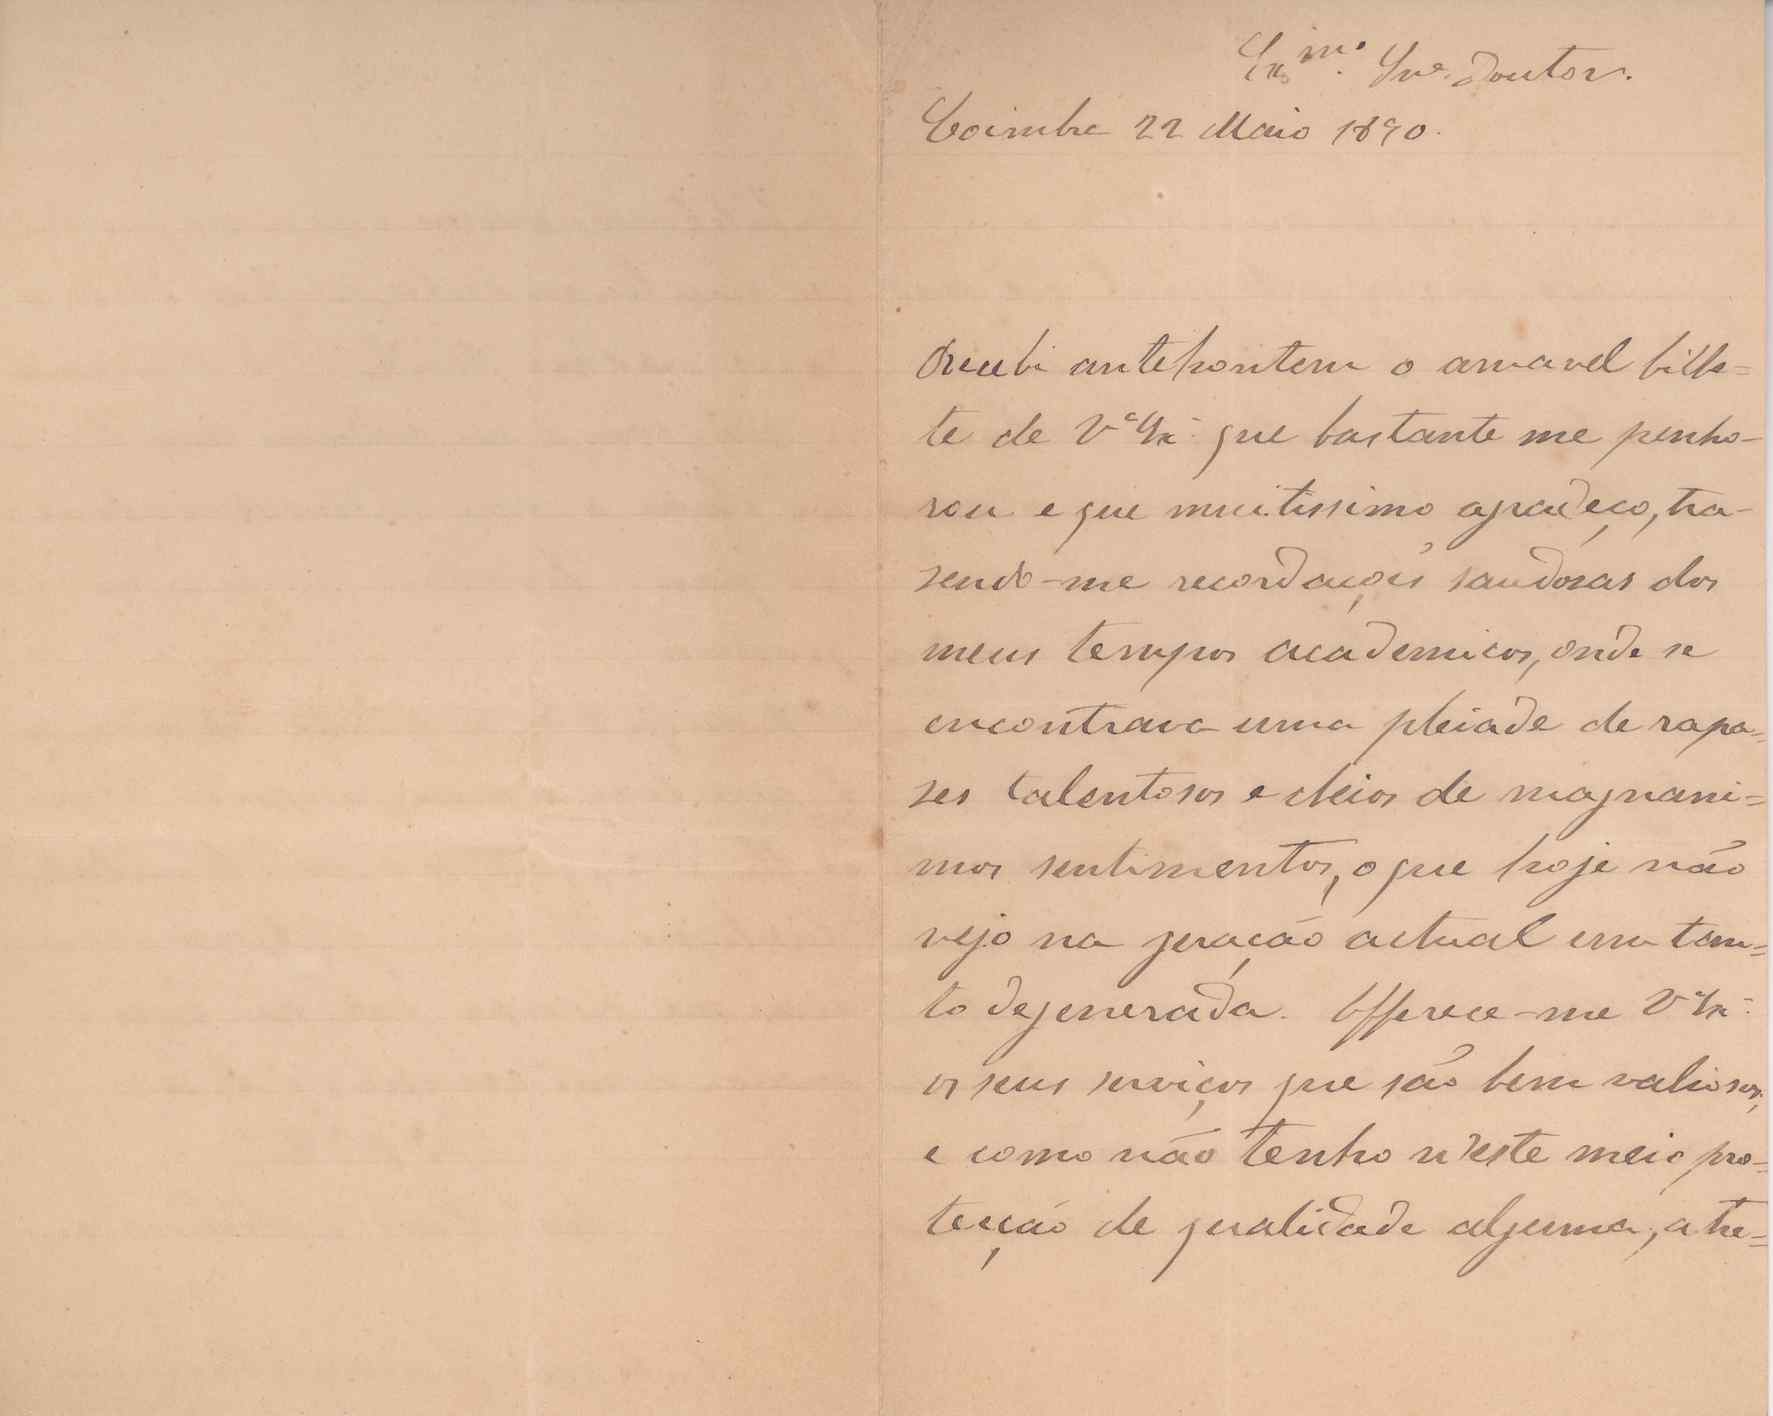 Ex.mo Snr. Doutor.
Coimbra 22 Maio 1890.
Recebi antehontem o amavel bilhe=
te de V.ª Ex.ª que bastante me penho-
rou e que muitissimo agradeço, tra-
sendo-me recordações saudosas dos
meus tempos academicos, onde se
encontrava uma pleiade de rapa=
ses talentosos e cheios de magnani=
mos sentimentos, o que hoje não
vejo na geração actual um tan=
to degenerada. Offerece-me V.ª Ex.ª
os seus serviços que são bem valiosos,
e como não tenho n'este meio pro=
tecção de qualidade alguma, atre=